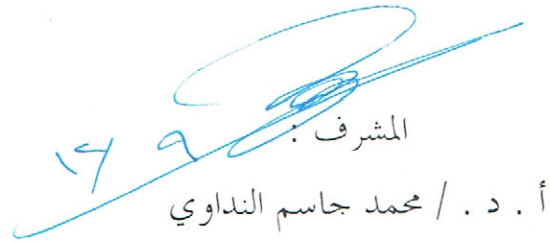 المشرف :
أ . د . / محمد جاسم النداوي